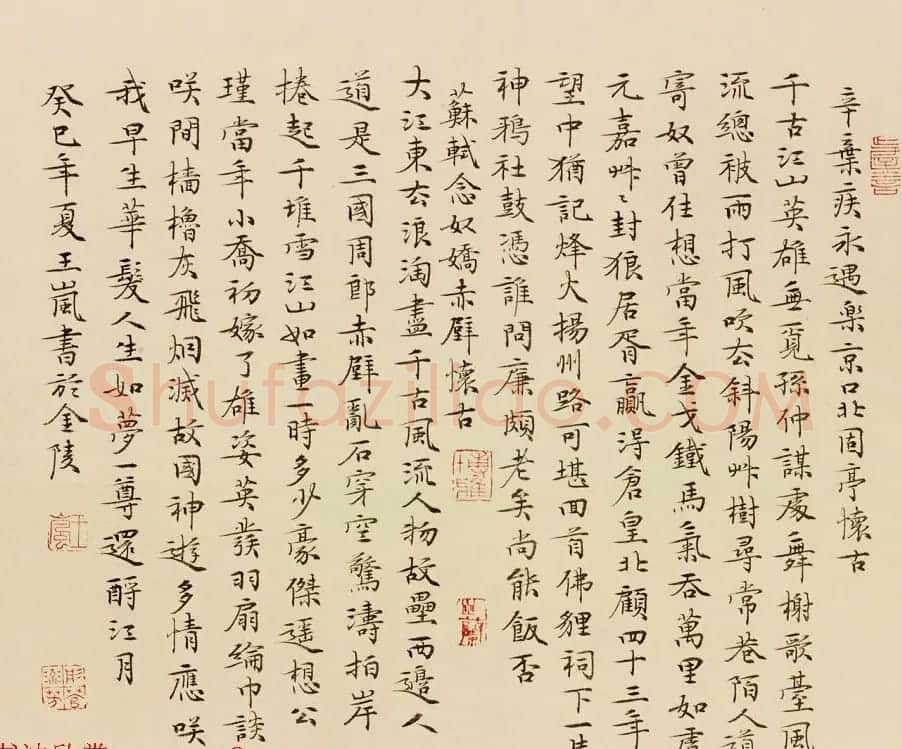 辛棄疾永遇樂京口北固亭懷古
千古江山英雄無覓孫仲謀處舞榭歌臺風
流總被雨打風吹去斜陽艸樹尋常巷陌人道
寄奴曾住想當年金戈鐵馬氣吞萬里如虎
元嘉艸〻封狼居胥贏得倉皇北顧四十三年
望中猶記烽火揚州路可堪回首佛貍祠下一片
神鴉社鼓憑誰問廉頗老矣尚能飯否
蘇軾念奴嬌赤壁懷古
大江東去浪淘盡千古風流人物故壘西邊人
道是三國周郎赤壁亂石穿空驚濤拍岸
捲起千堆雪江山如畫一時多少豪傑遙想公
瑾當年小喬初嫁了雄姿英發羽扇綸巾談
咲間檣櫓灰飛烟滅故國神遊多情應咲
我早生華髮人生如夢一尊還酹江月
癸巳年夏王嵐書於金陵
Shufaziliao.COM